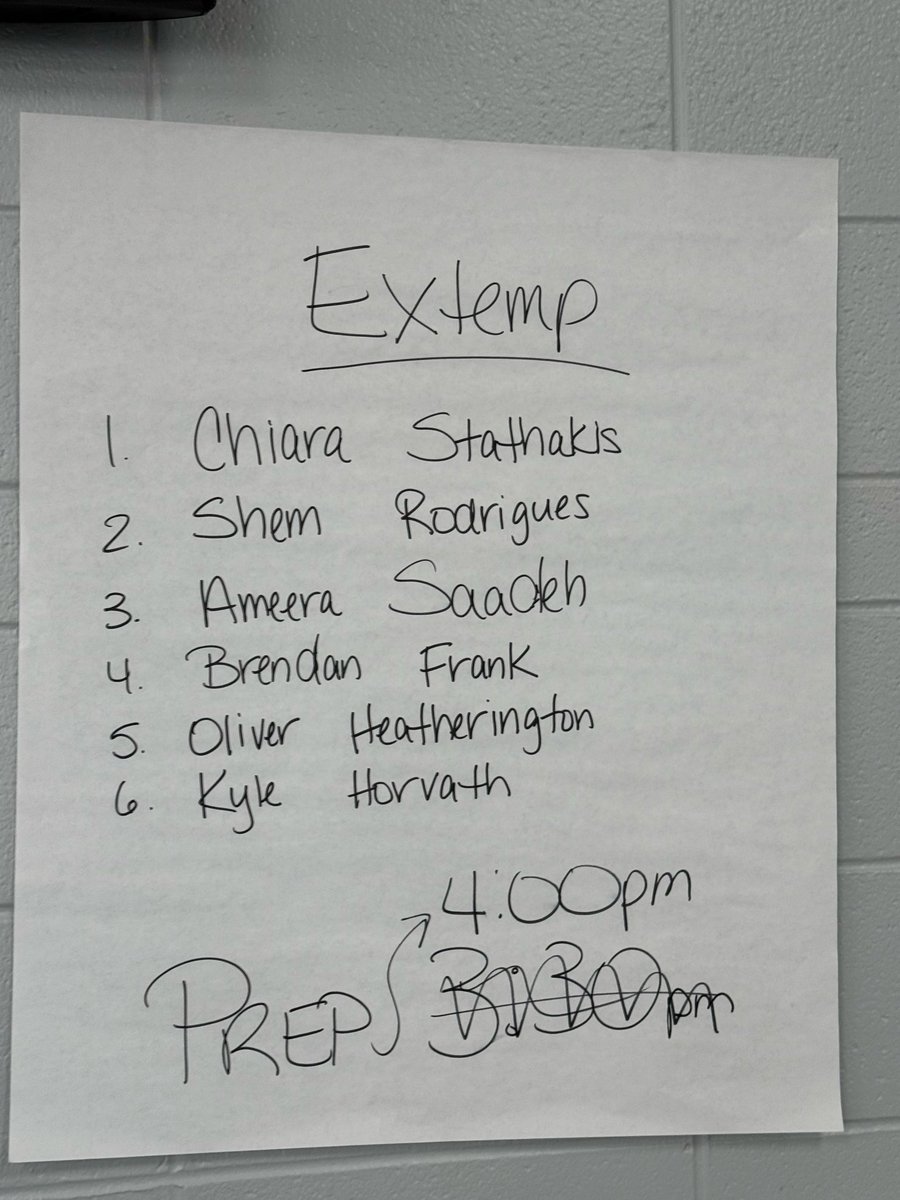 Extemp
1. Chiara Stathakis
2. Shem Rodrigues
3. Ameera Saadeh
4. Brendan Frank
5. Oliver Heatherington
6. Kyle Horvath
4:00pm
PREP 3:30pm